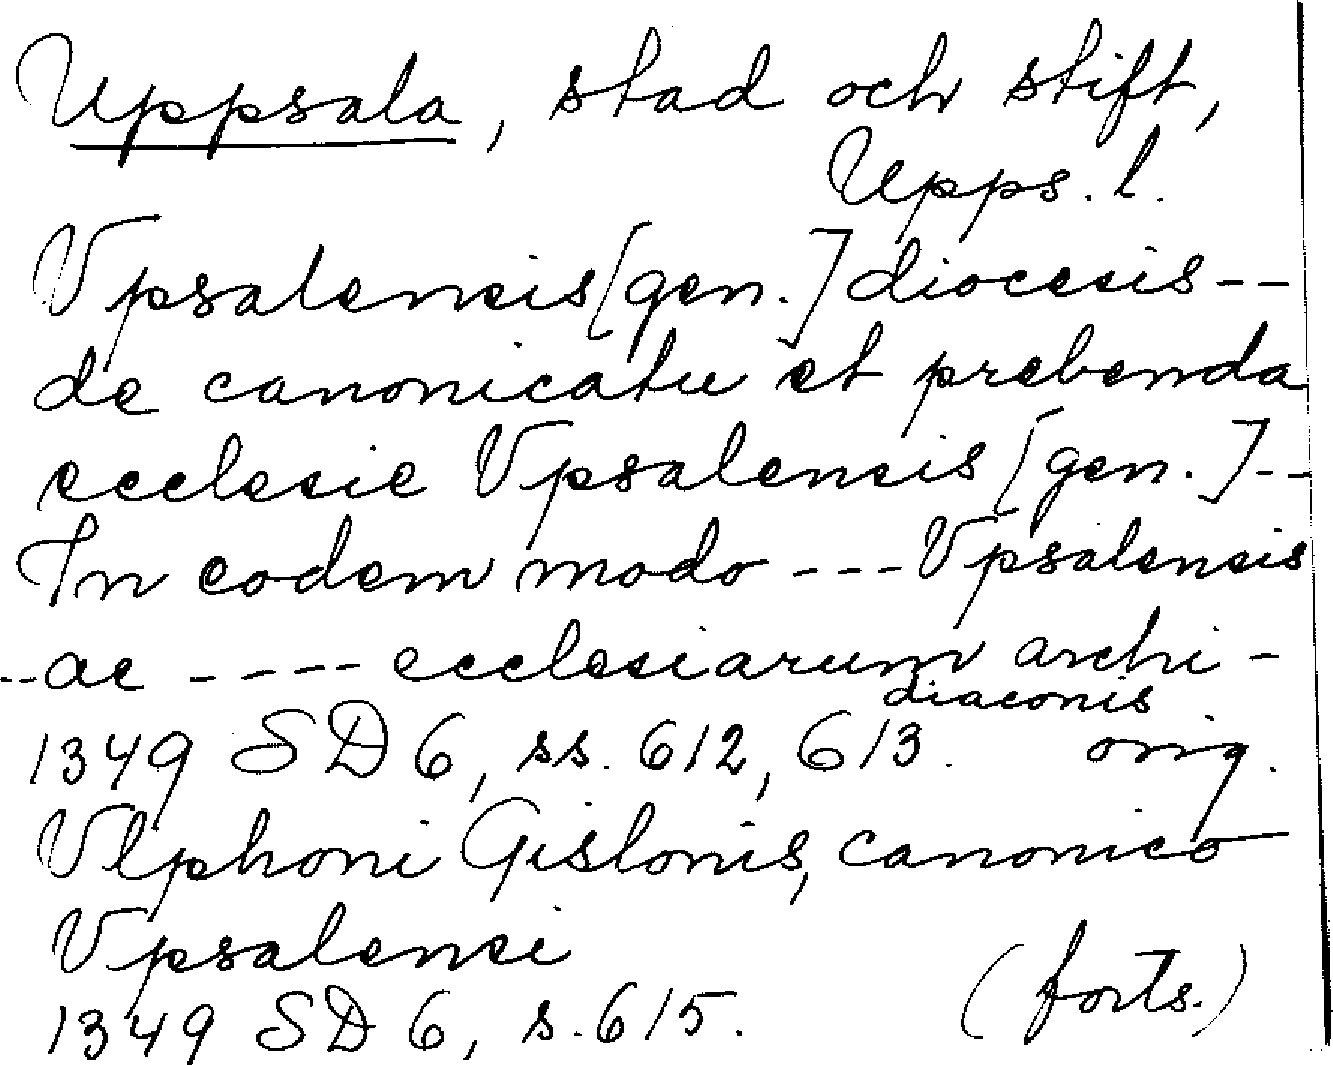 Uppsala, stad och stift,
Upps. l.
Vpsalensis [gen.] diocesis --
de canonicatu et prebenda
ecclesie Vpsalensis [gen.] --
In eodem modo --- Vpsalensis
-- ac ---- ecclesiarum archi-
diaconis
1349 SD 6, ss. 612, 613. orig.
Vlphoni Gislonis, canonico
Vpsalensi
1349 SD 6, s. 615. (forts.)